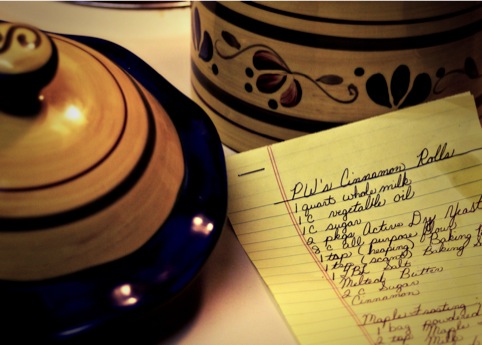 PW's Cinnamon Rolls
1 quart whole milk
1 C vegetable oil
1 C sugar
2 pkgs Active Dry Yeast
8 C all purpose flour
1 tsp (heaping) Baking
1 tsp (scant) Baking S
1 TBL Salt
Melted Butter
2 C Sugar
Cinnamon
Maple Frosting
1 bag powdered
2 tsp Maple
Milk